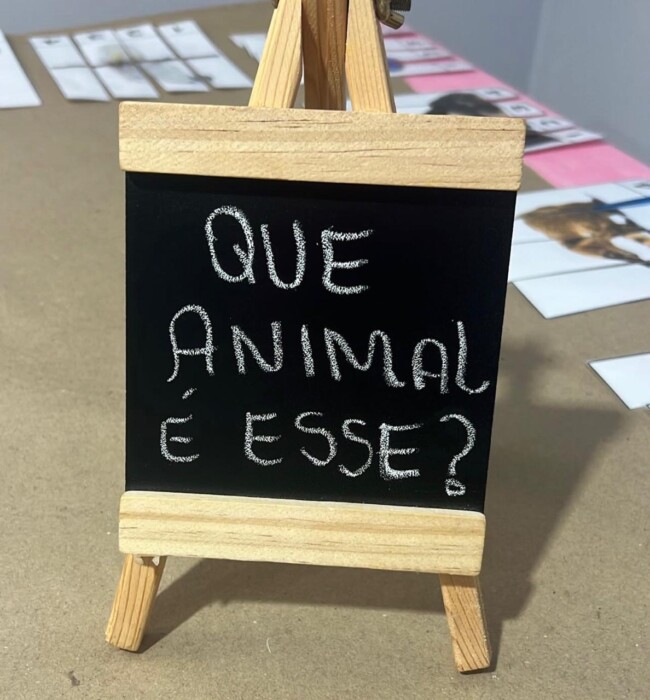 QUE
ANIMAL
É ESSE?